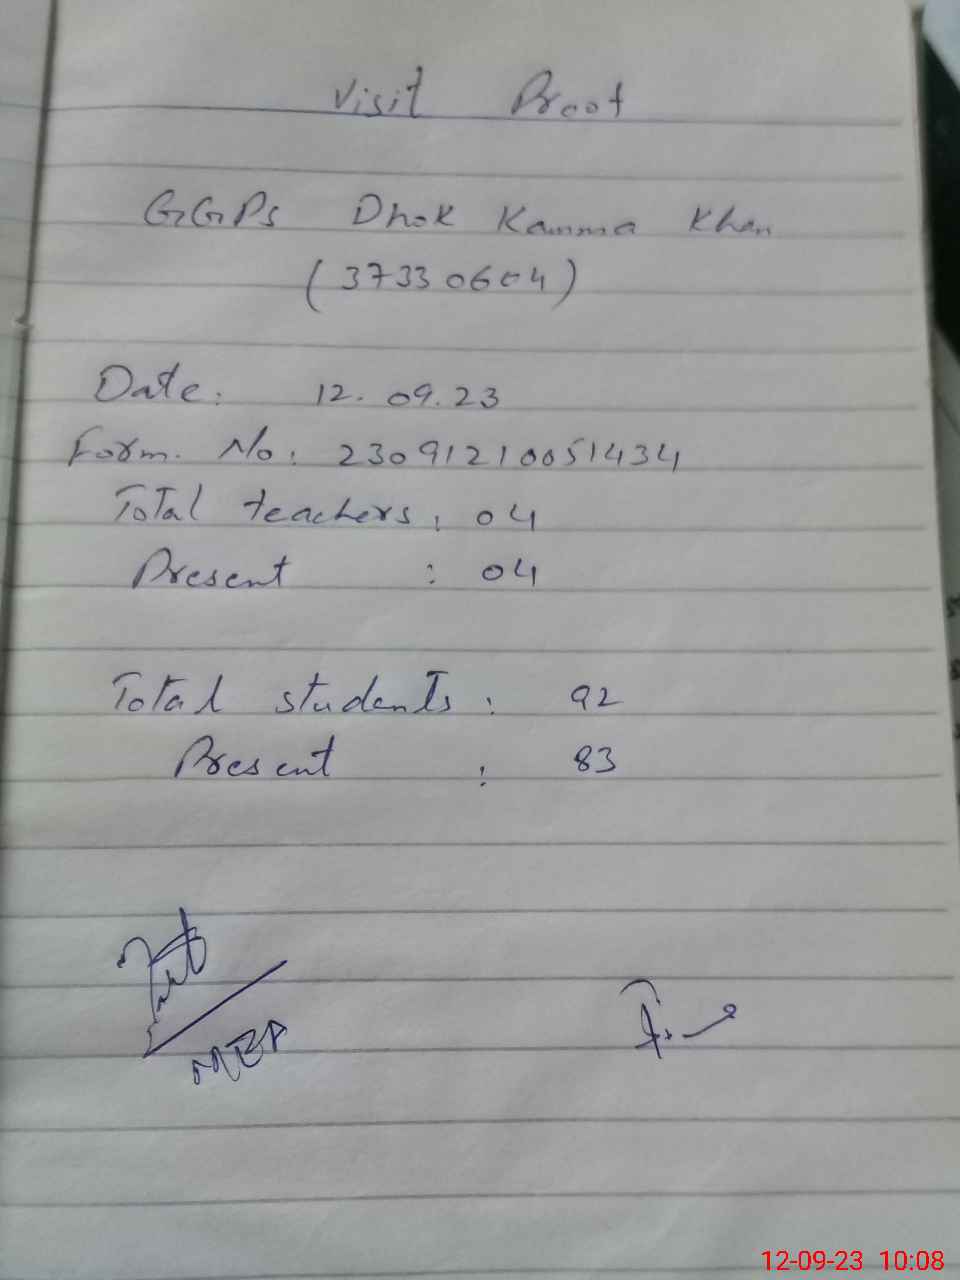 Visit Proof
GGPS Dhok Kamma Khan
(37330604)
Date: 12.09.23
Form. No: 23091210051434
Total teachers: 04
Present : 04
Total students: 92
Present : 83
MEA
12-09-23 10:08